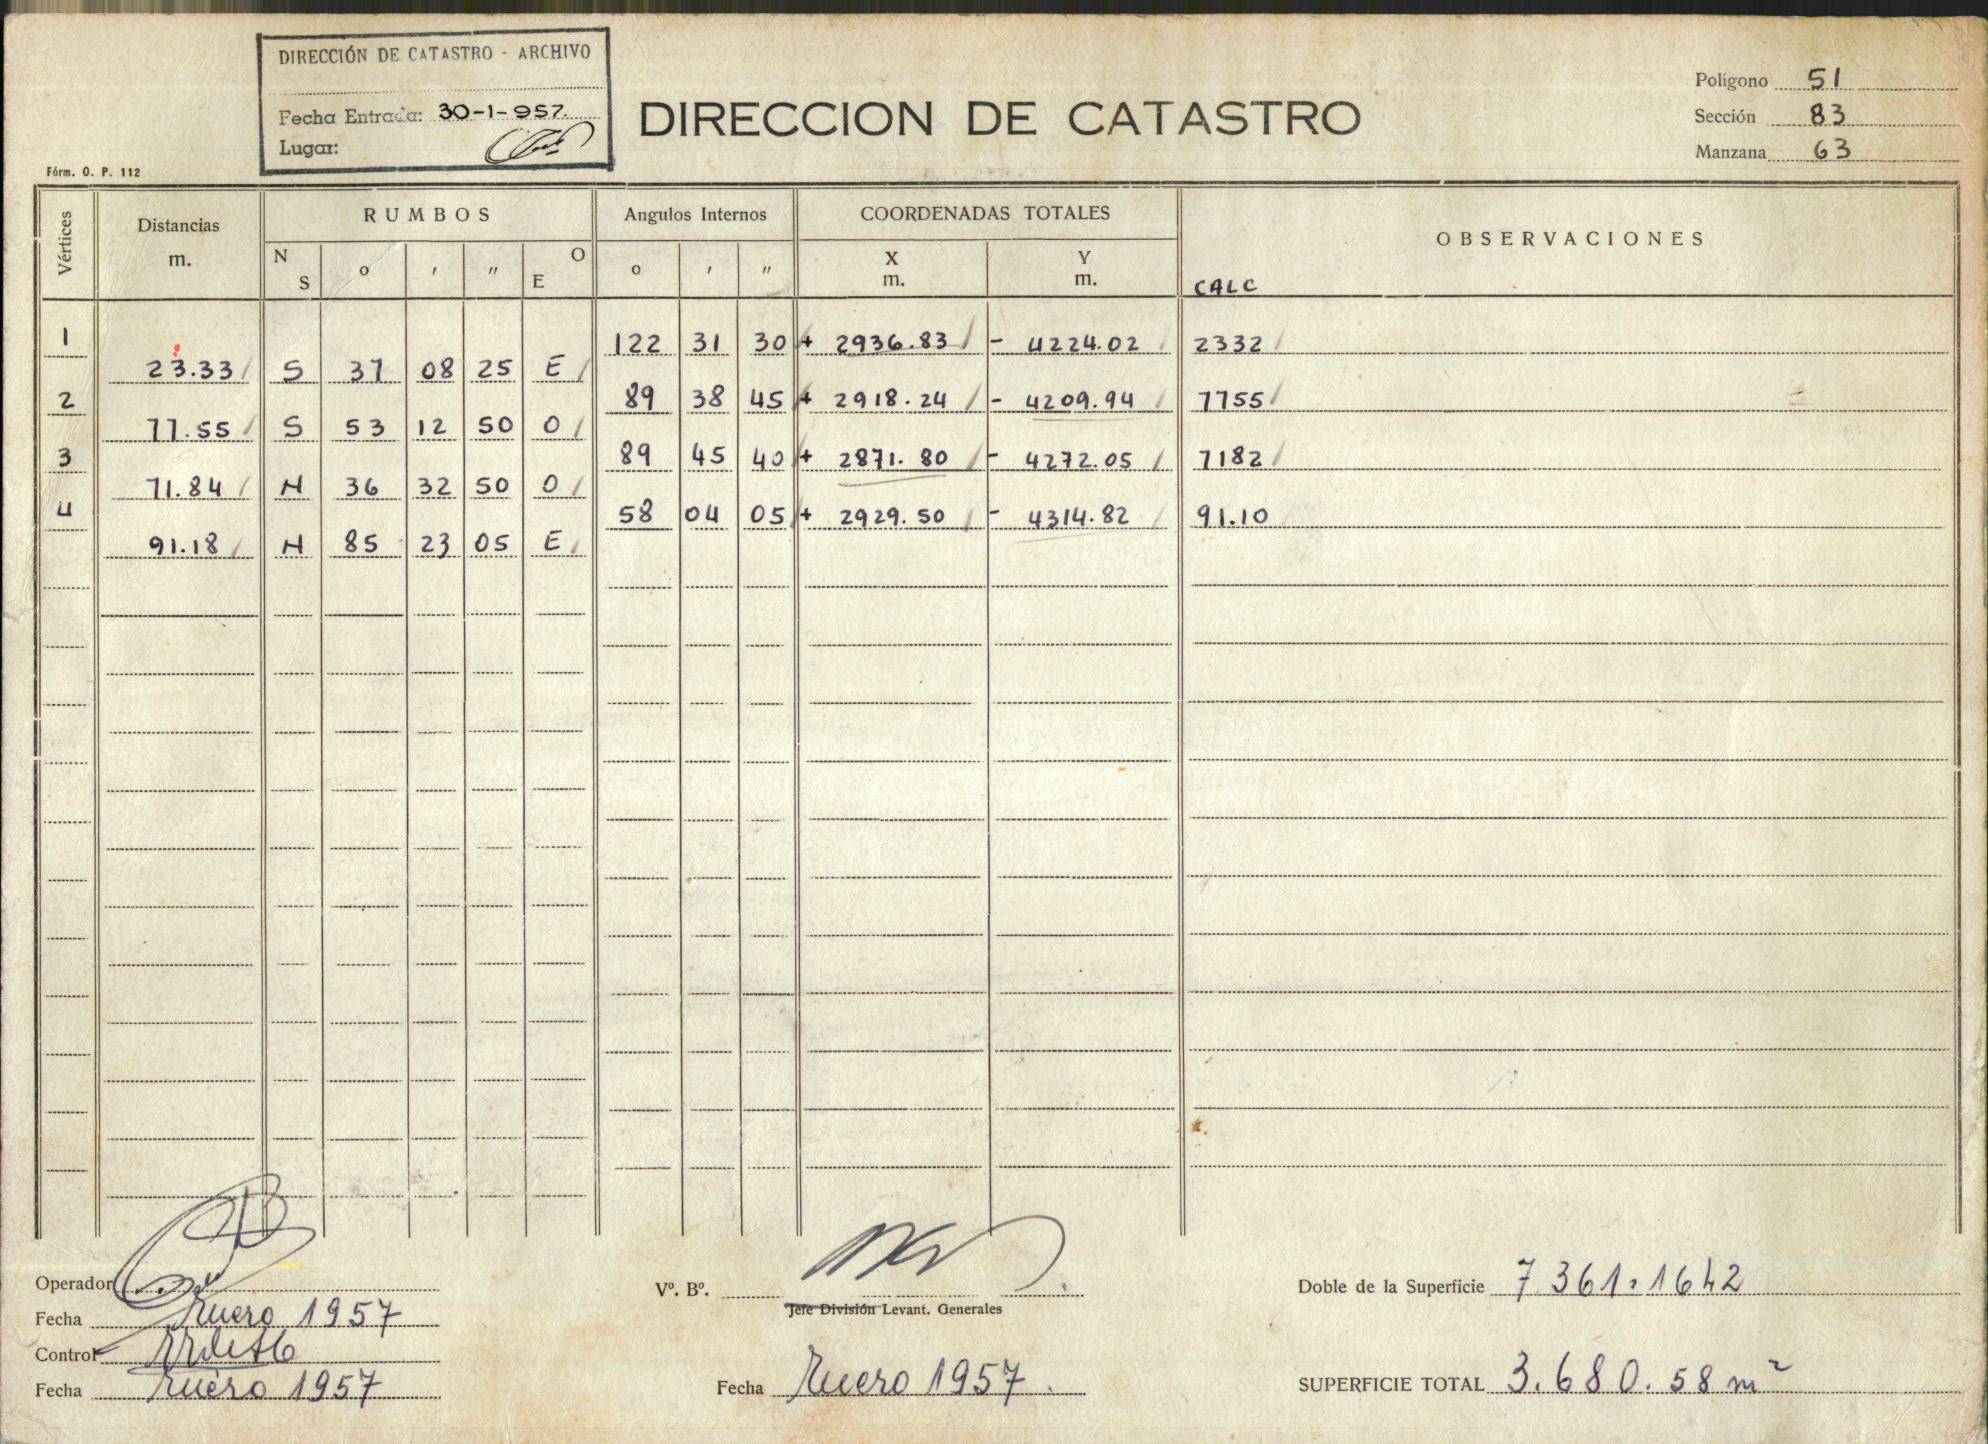 DIRECCIÓN DE CATASTRO - ARCHIVO
Fecha Entrada: 30-1-957.
Lugar:
DIRECCION DE CATASTRO
Polígono 51
Sección 83
Manzana 63
Fórm. O. P. 112
Vértices Distancias m. RUMBOS Angulos Internos COORDENADAS TOTALES OBSERVACIONES
N S o ′ ″ O E o ′ ″ X m. Y m. CALC
1 122 31 30 + 2936.83 - 4224.02 2332
23.33 S 37 08 25 E
2 89 38 45 + 2918.24 - 4209.94 7755
77.55 S 53 12 50 O
3 89 45 40 + 2871.80 - 4272.05 7182
71.84 N 36 32 50 O
4 58 04 05 + 2929.50 - 4314.82 91.10
91.18 N 85 23 05 E
Operador
Fecha Enero 1957
Control
Fecha Enero 1957
Vº. Bº.
Jefe División Levant. Generales
Fecha Enero 1957.
Doble de la Superficie 7361.1642
SUPERFICIE TOTAL 3.680.58 m²